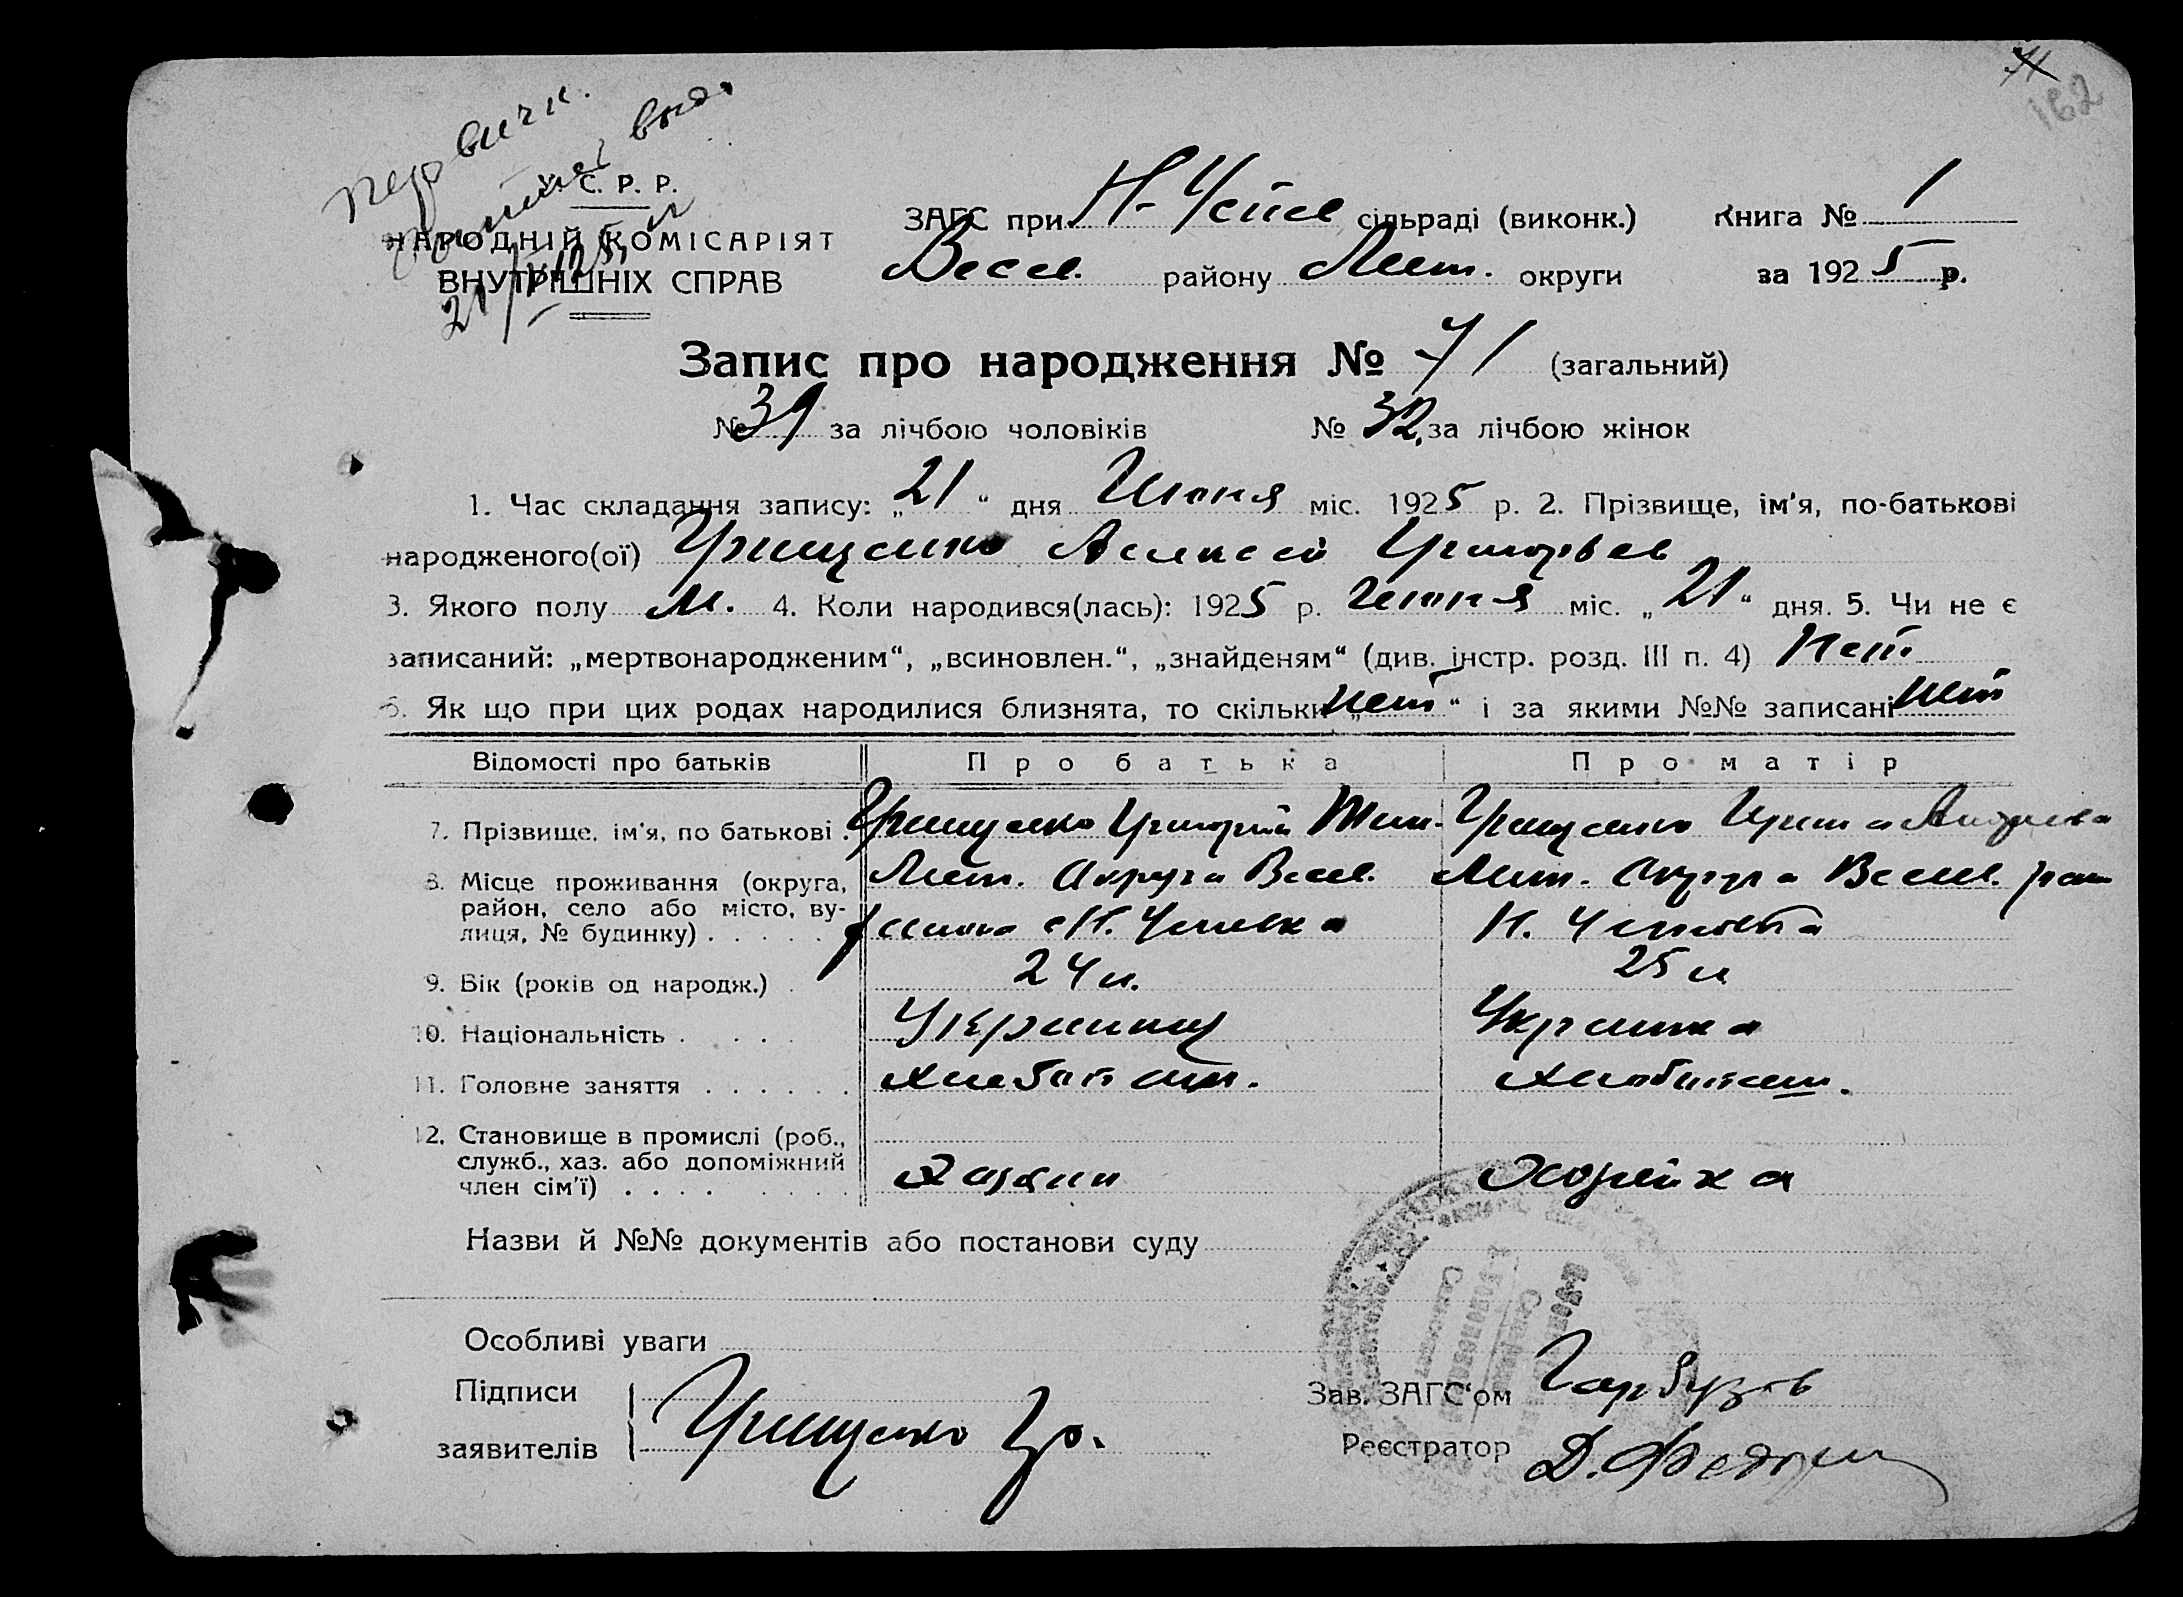 162
Первичн.
выд.
С. Р. Р.
НАРОДНІЙ КОМІСАРІЯТ
ВНУТРІШНІХ СПРАВ
ЗАГС при сільраді (виконк.) Книга № 1
Весел. району Мит. округи за 1925 р.
Запис про народження № 71 (загальний)
№ 39 за лічбою чоловіків № 32 за лічбою жінок
1. Час складання запису: „21“ дня Июня міс. 1925 р. 2. Прізвище, ім'я, по-батькові
народженого(ої) Грищенко Алексей Григорьев
3. Якого полу м. 4. Коли народився(лась): 1925 р. Июня міс. „21“ дня. 5. Чи не є
записаний: „мертвонародженим“, „всиновлен.“, „знайденям“ (див. інстр. розд. III п. 4) Нет
6. Як що при цих родах народилися близнята, то скільки „нет“ і за якими №№ записані нет
Відомості про батьків Про батька Про матір
7. Прізвище, ім'я, по батькові . Грищенко Григорий Грищенко
8. Місце проживання (округа, район, село або місто, ву-лиця, № будинку) . . . . . Мит. Округа Весел. Мит. Округа Весел.
9. Вік (років од народж.) . 24 л. 25 л
10. Національність . . . . . Украинец Украинка
11. Головне заняття . . . . . . Хлебопаш. Хлебопаш.
12. Становище в промислі (роб., служб., хаз. або допоміжний член сім'ї) . . . . Хозяин Хозяйка
Назви й №№ документів або постанови суду
Особливі уваги
Підписи
заявителів Грищенко Гр.
Зав. ЗАГС'ом Гарбузов
Реєстратор Д.